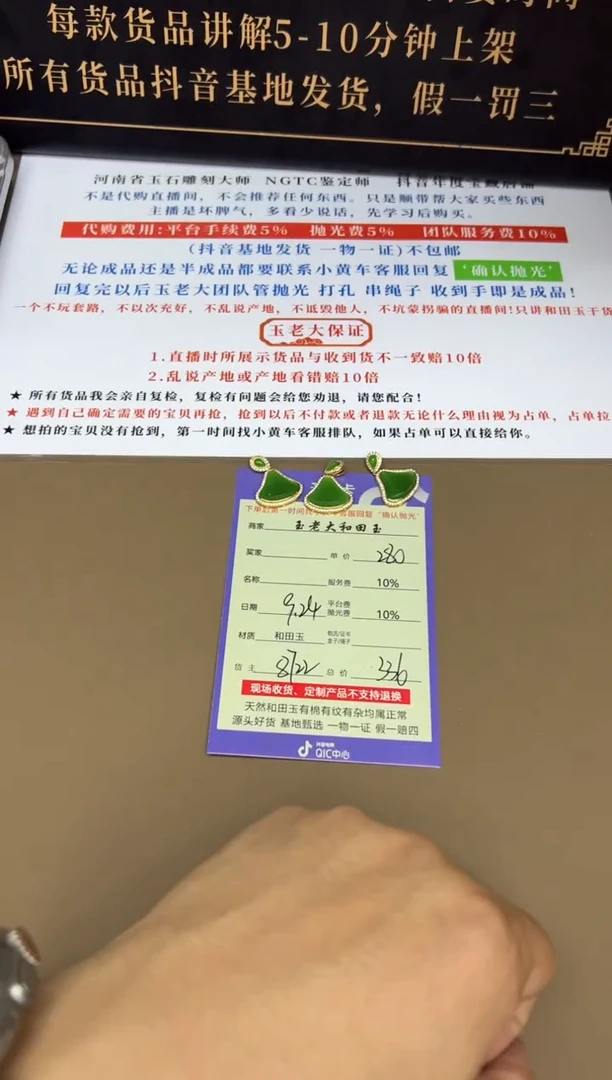 每款货品讲解5-10分钟上架
所有货品抖音基地发货，假一罚三
河南省玉石雕刻大师 NGTC鉴定师
不是代购直播间，不会推荐任何东西。只是顺带帮大家买些东西
主播是坏脾气，多看少说话，先学习后购买。
代购费用:平台手续费5% 抛光费5% 团队服务费10%
(抖音基地发货 一物一证)不包邮
无论成品还是半成品都要联系小黄车客服回复 ‘确认抛光’
回复完以后玉老大团队管抛光 打孔 串绳子 收到手即是成品!
一个不玩套路，不以次充好，不乱说产地，不诋毁他人，不坑蒙拐骗的直播间!只讲和田玉干货
玉老大保证
1.直播时所展示货品与收到货不一致赔10倍
2.乱说产地或产地看错赔10倍
★ 所有货品我会亲自复检，复检有问题会给您劝退，请您配合!
★ 遇到自己确定需要的宝贝再抢，抢到以后不付款或者退款无论什么理由视为占单，占单拉
★ 想拍的宝贝没有抢到，第一时间找小黄车客服排队，如果占单可以直接给你。
下单后第一时间找小黄车客服回复“确认抛光”
商家 玉老大和田玉
买家 单价 280
名称 服务费 10%
日期 9.24 平台费 抛光费 10%
材质 和田玉 鉴定/证书 盒子/绳子
货主 8722 总价 336
现场收货、定制产品不支持退换
天然和田玉有棉有纹有杂均属正常
源头好货 基地甄选 一物一证 假一赔四
抖音电商
QIC中心